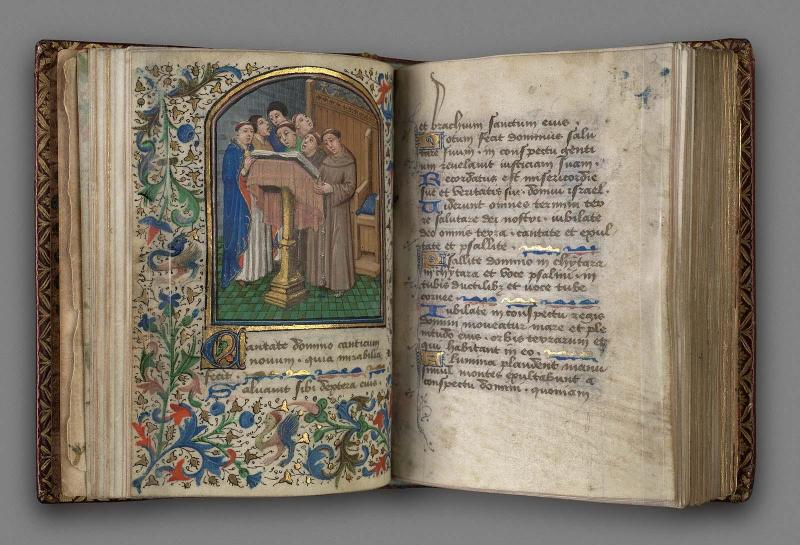 Cantate domino canticum
novum · quia mirabilia
fecit ·
Saluavit sibi deptera eius ·
et brachium sanctum eius ·
Notum fecit dominus salu
tare suum · in conspectu genti
um revelavit iusticiam suam ·
Recordatus est misericordie
sue et veritatis sue · domui israel ·
Viderunt omnes termini ter
re salutare dei nostri · iubilate
deo omnis terra · cantate et exul
tate et psallite ·
Psallite domino in chytara
in chytara et voce psalmi · in
tubis ductilibus et voce tube
cornee ·
Iubilate in conspectu regis
domini moveatur mare et ple
nitudo eius · orbis terrarum et
qui habitant in eo ·
Flumina plaudent manu
simul montes exultabunt a
conspectu domini · quoniam